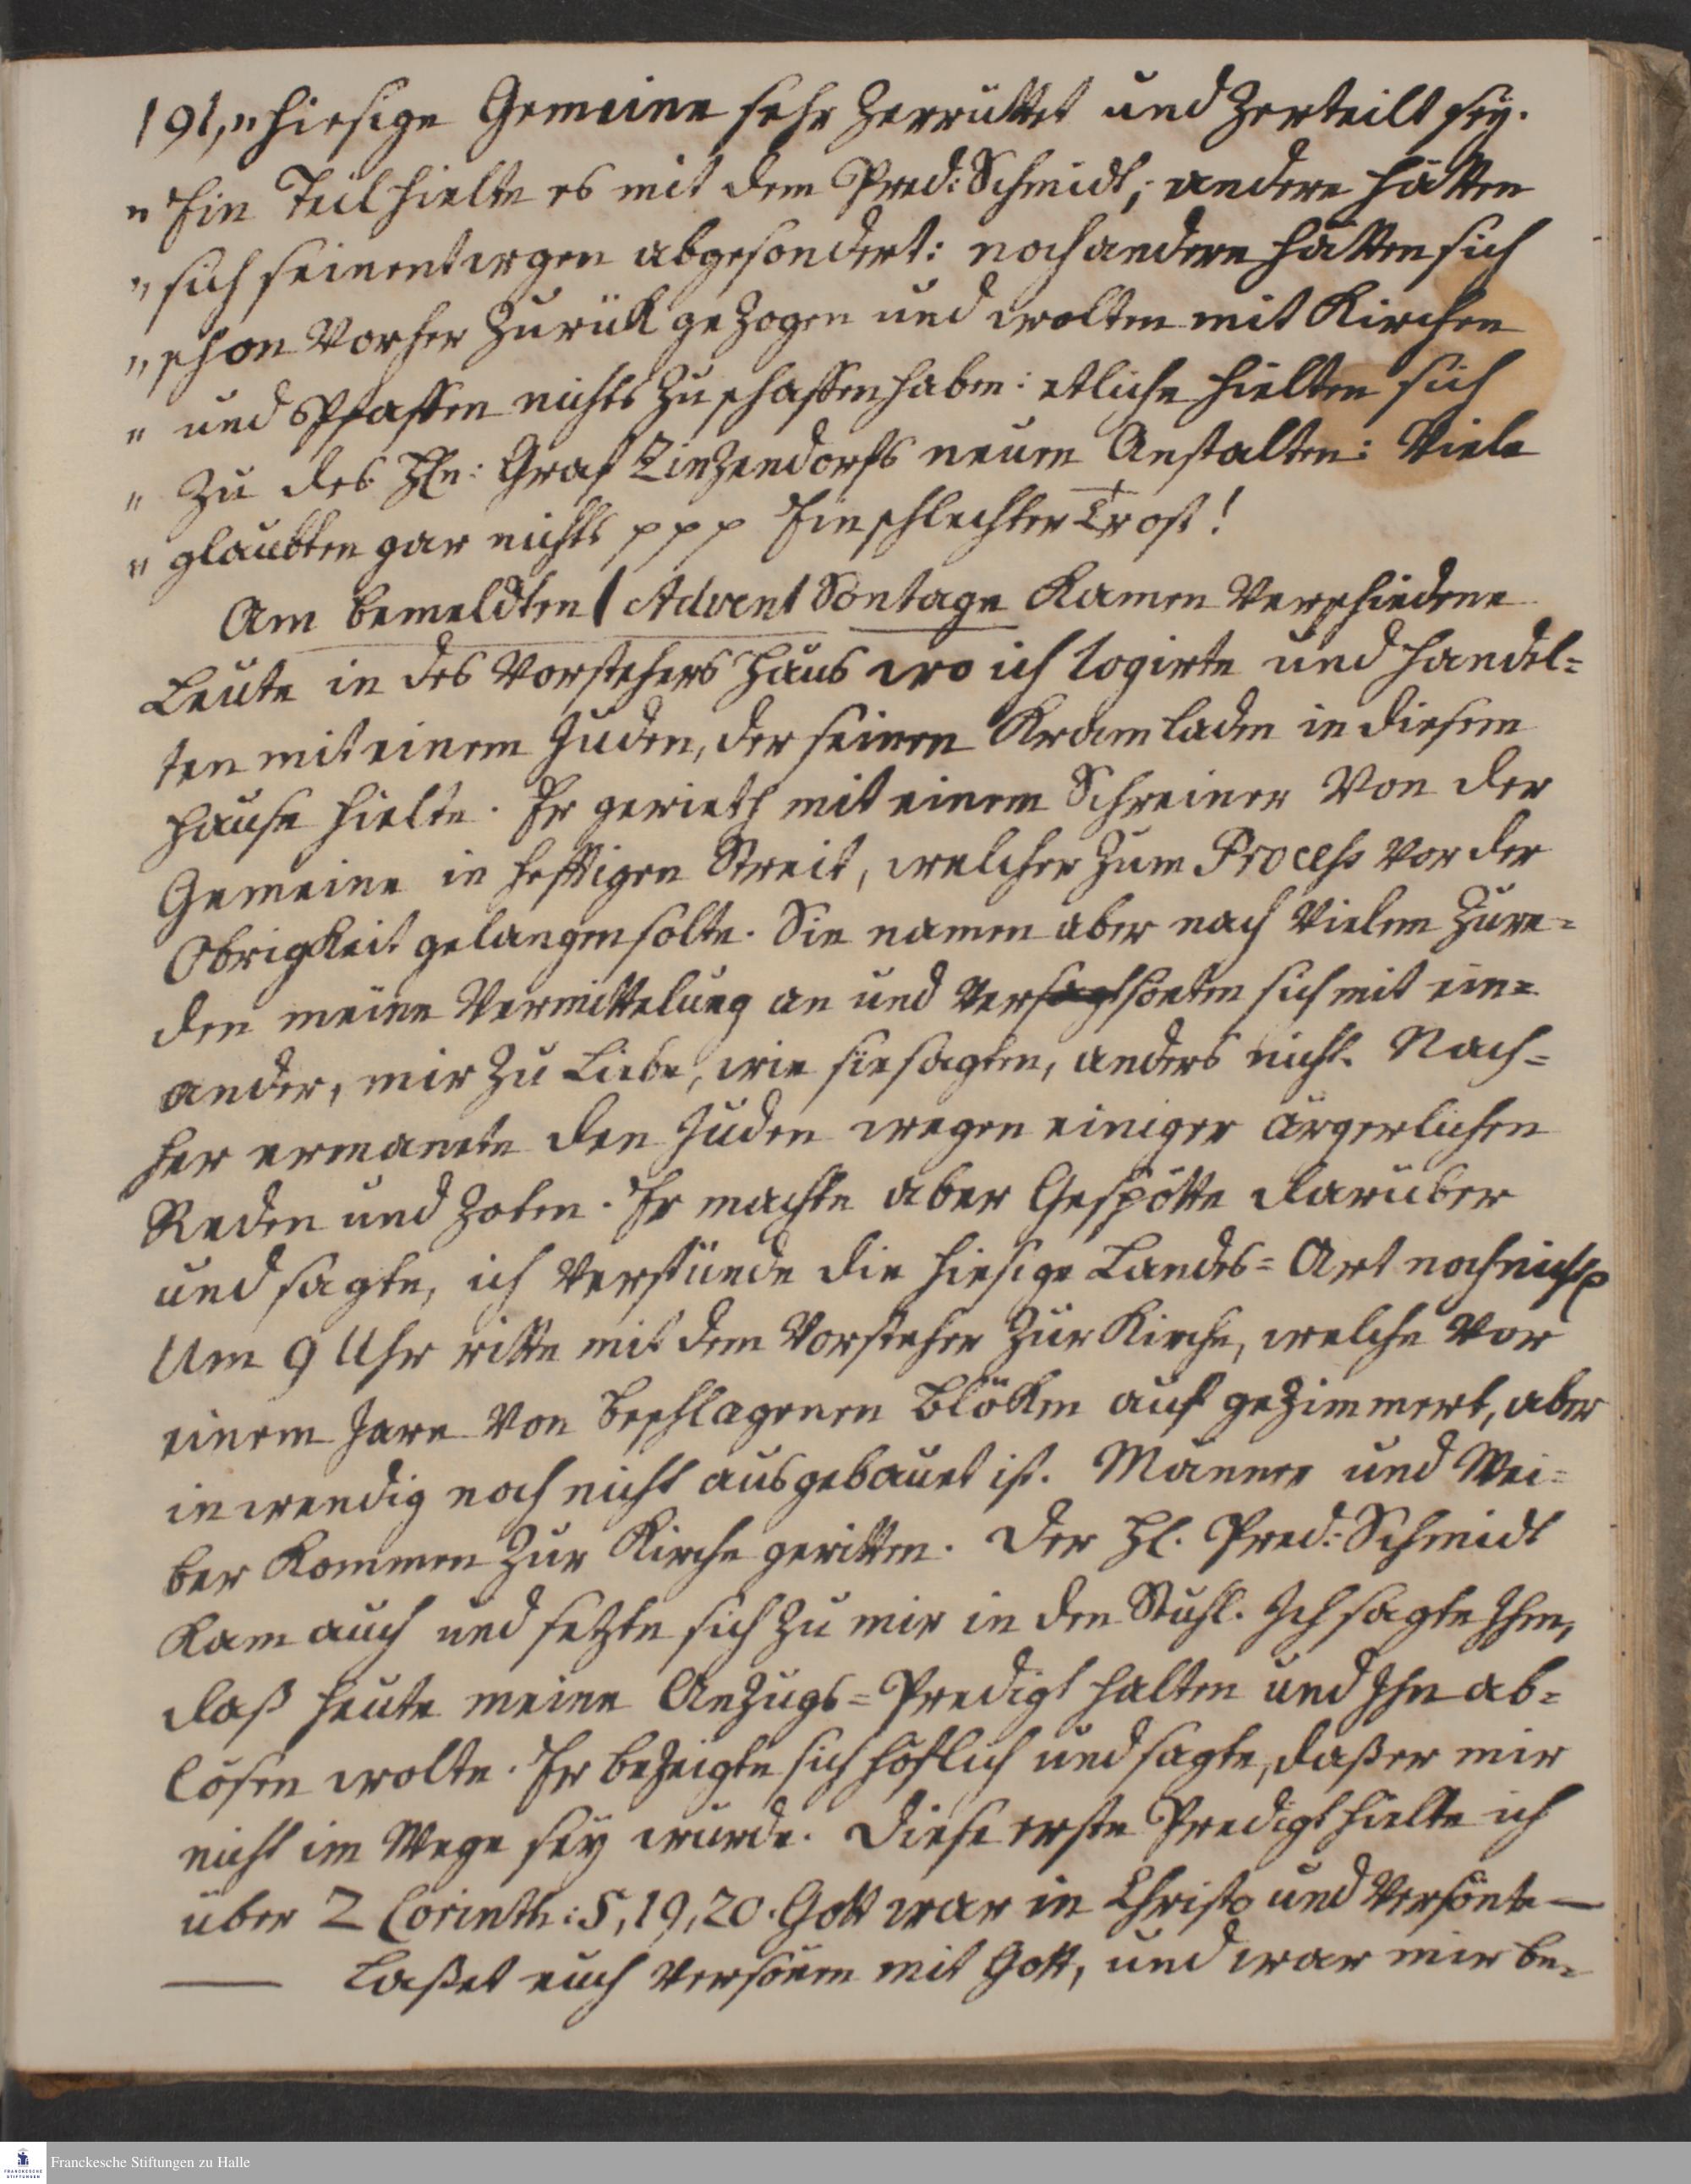 191, „hiesige Gemeine sehr zerrüttet und zerteilt sey.
„ Ein Teil hielte es mit dem Pred: Schmidt; andere hätten
„ sich seinentwegen abgesondert: noch andere hätten sich
„ schon vorher zurük gezogen und wolten mit Kirchen
„ und Pfaffen nichts zu schaffen haben: etliche hielten sich
„ zu des Hn: Graf Zinzendorfs neuen Anstalten: Viele
„ glaubten gar nichts ppp Ein schlechter Trost!
Am bemeldten 1 Advent Sontage kamen verschiedene
Leute in des Vorstehers Haus wo ich logirte und handel=
ten mit einem Juden, der seinen Kramladen in diesem
Hause hielte. Er gerieth mit einem Schreiner von der
Gemeine in heftigen Streit, welcher zum Process vor der
Obrigkeit gelangen solte. Sie namen aber nach vielem Zure=
den meine Vermittelung an und versöneten sich mit ein=
ander, mir zu Liebe, wie sie sagten, anders nicht. Nach=
her ermanete den Juden wegen einiger ärgerlichen
Reden und Zoten. Er machte aber Gespötte darüber
und sagte, ich verstünde die hiesige Landes=Art noch nicht p
Um 9 Uhr ritte mit dem Vorsteher zur Kirche, welche vor
einem Jare von beschlagenen Blöken auf gezimmert, aber
inwendig noch nicht ausgebauet ist. Männer und Wei=
ber kommen zur Kirche geritten. Der H. Pred: Schmidt
kam auch und setzte sich zu mir in den Stuhl. Ich sagte Ihm,
daß heute meine Anzugs=Predigt halten und Ihn ab=
lösen wolte. Er bezeigte sich höflich und sagte, daß er mir
nicht im Wege sey würde. Diese erste Predigt hielte ich
über 2 Corinth: 5, 19, 20. Gott war in Christo und versönte —
— Laßet euch versönen mit Gott, und war mir be=
Franckesche Stiftungen zu Halle
FRANCKESCHE STIFTUNGEN